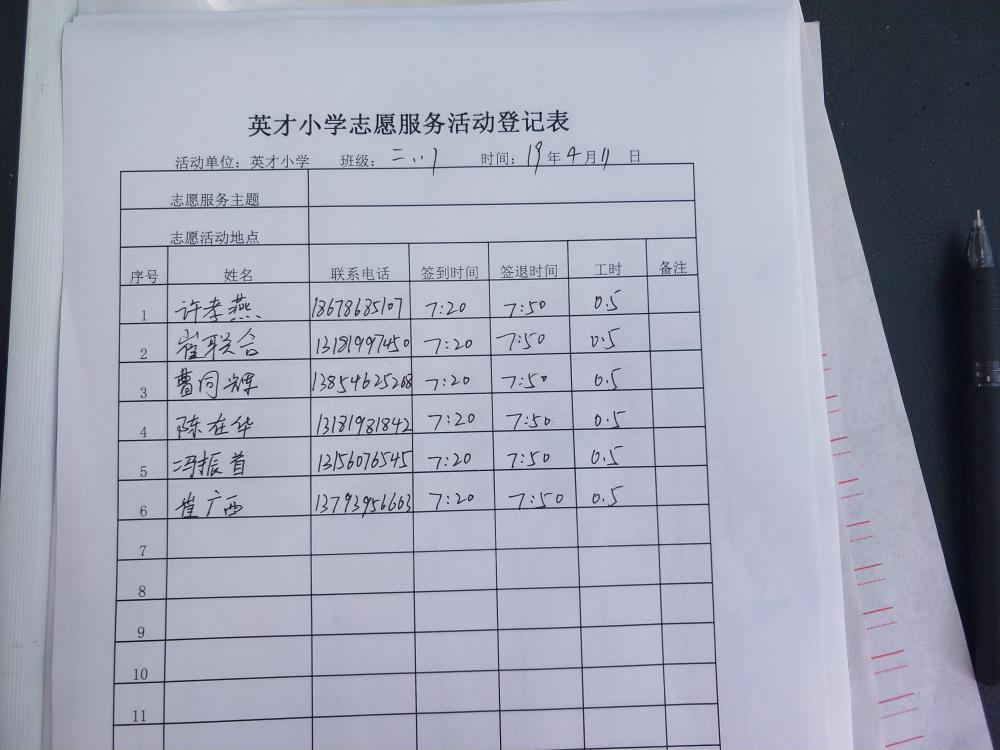 英才小学志愿服务活动登记表
活动单位：英才小学 班级：二.1 时间：19年4月11日
志愿服务主题
志愿活动地点
序号 姓名 联系电话 签到时间 签退时间 工时 备注
1 许孝燕 18678685107 7:20 7:50 0.5
2 崔联合 13181997450 7:20 7:50 0.5
3 曹同辉 13854625208 7:20 7:50 0.5
4 陈在华 13181981842 7:20 7:50 0.5
5 冯振首 13156076545 7:20 7:50 0.5
6 崔广西 13793956663 7:20 7:50 0.5
7
8
9
10
11